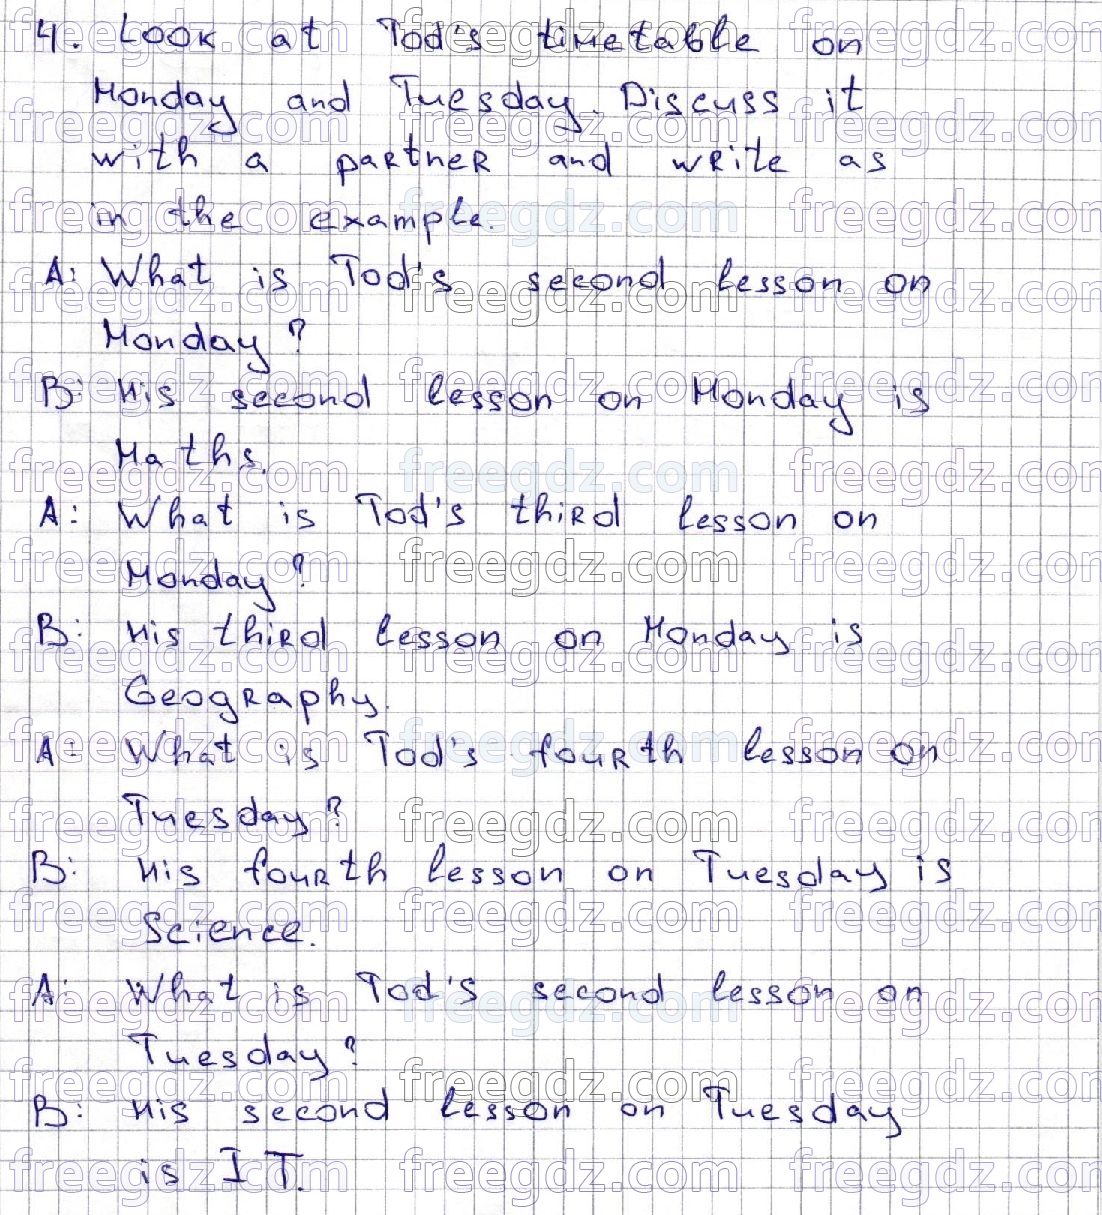 4. Look at Tod's timetable on
Monday and Tuesday. Discuss it
with a partner and write as
in the example.
A: What is Tod's second lesson on
Monday?
B: His second lesson on Monday is
Maths.
A: What is Tod's third lesson on
Monday?
B: His third lesson on Monday is
Geography.
A: What is Tod's fourth lesson on
Tuesday?
B: His fourth lesson on Tuesday is
Science.
A: What is Tod's second lesson on
Tuesday?
B: His second lesson on Tuesday
is IT.